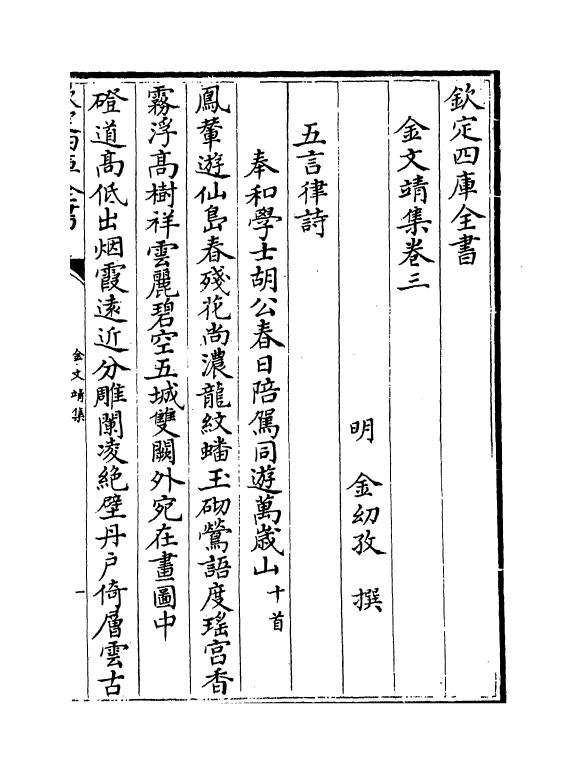 欽定四庫全書
金文靖集卷三
明 金幼孜 撰
五言律詩
奉和學士胡公春日陪駕同遊萬歲山十首
鳳輦遊仙島春殘花尚濃龍紋蟠玉砌鶯語度瑤宫香
霧浮髙樹祥雲麗碧空五城雙闕外宛在畫圖中
磴道髙低出烟霞遠近分雕闌凌絶壁丹戸倚層雲古
金文靖集
一